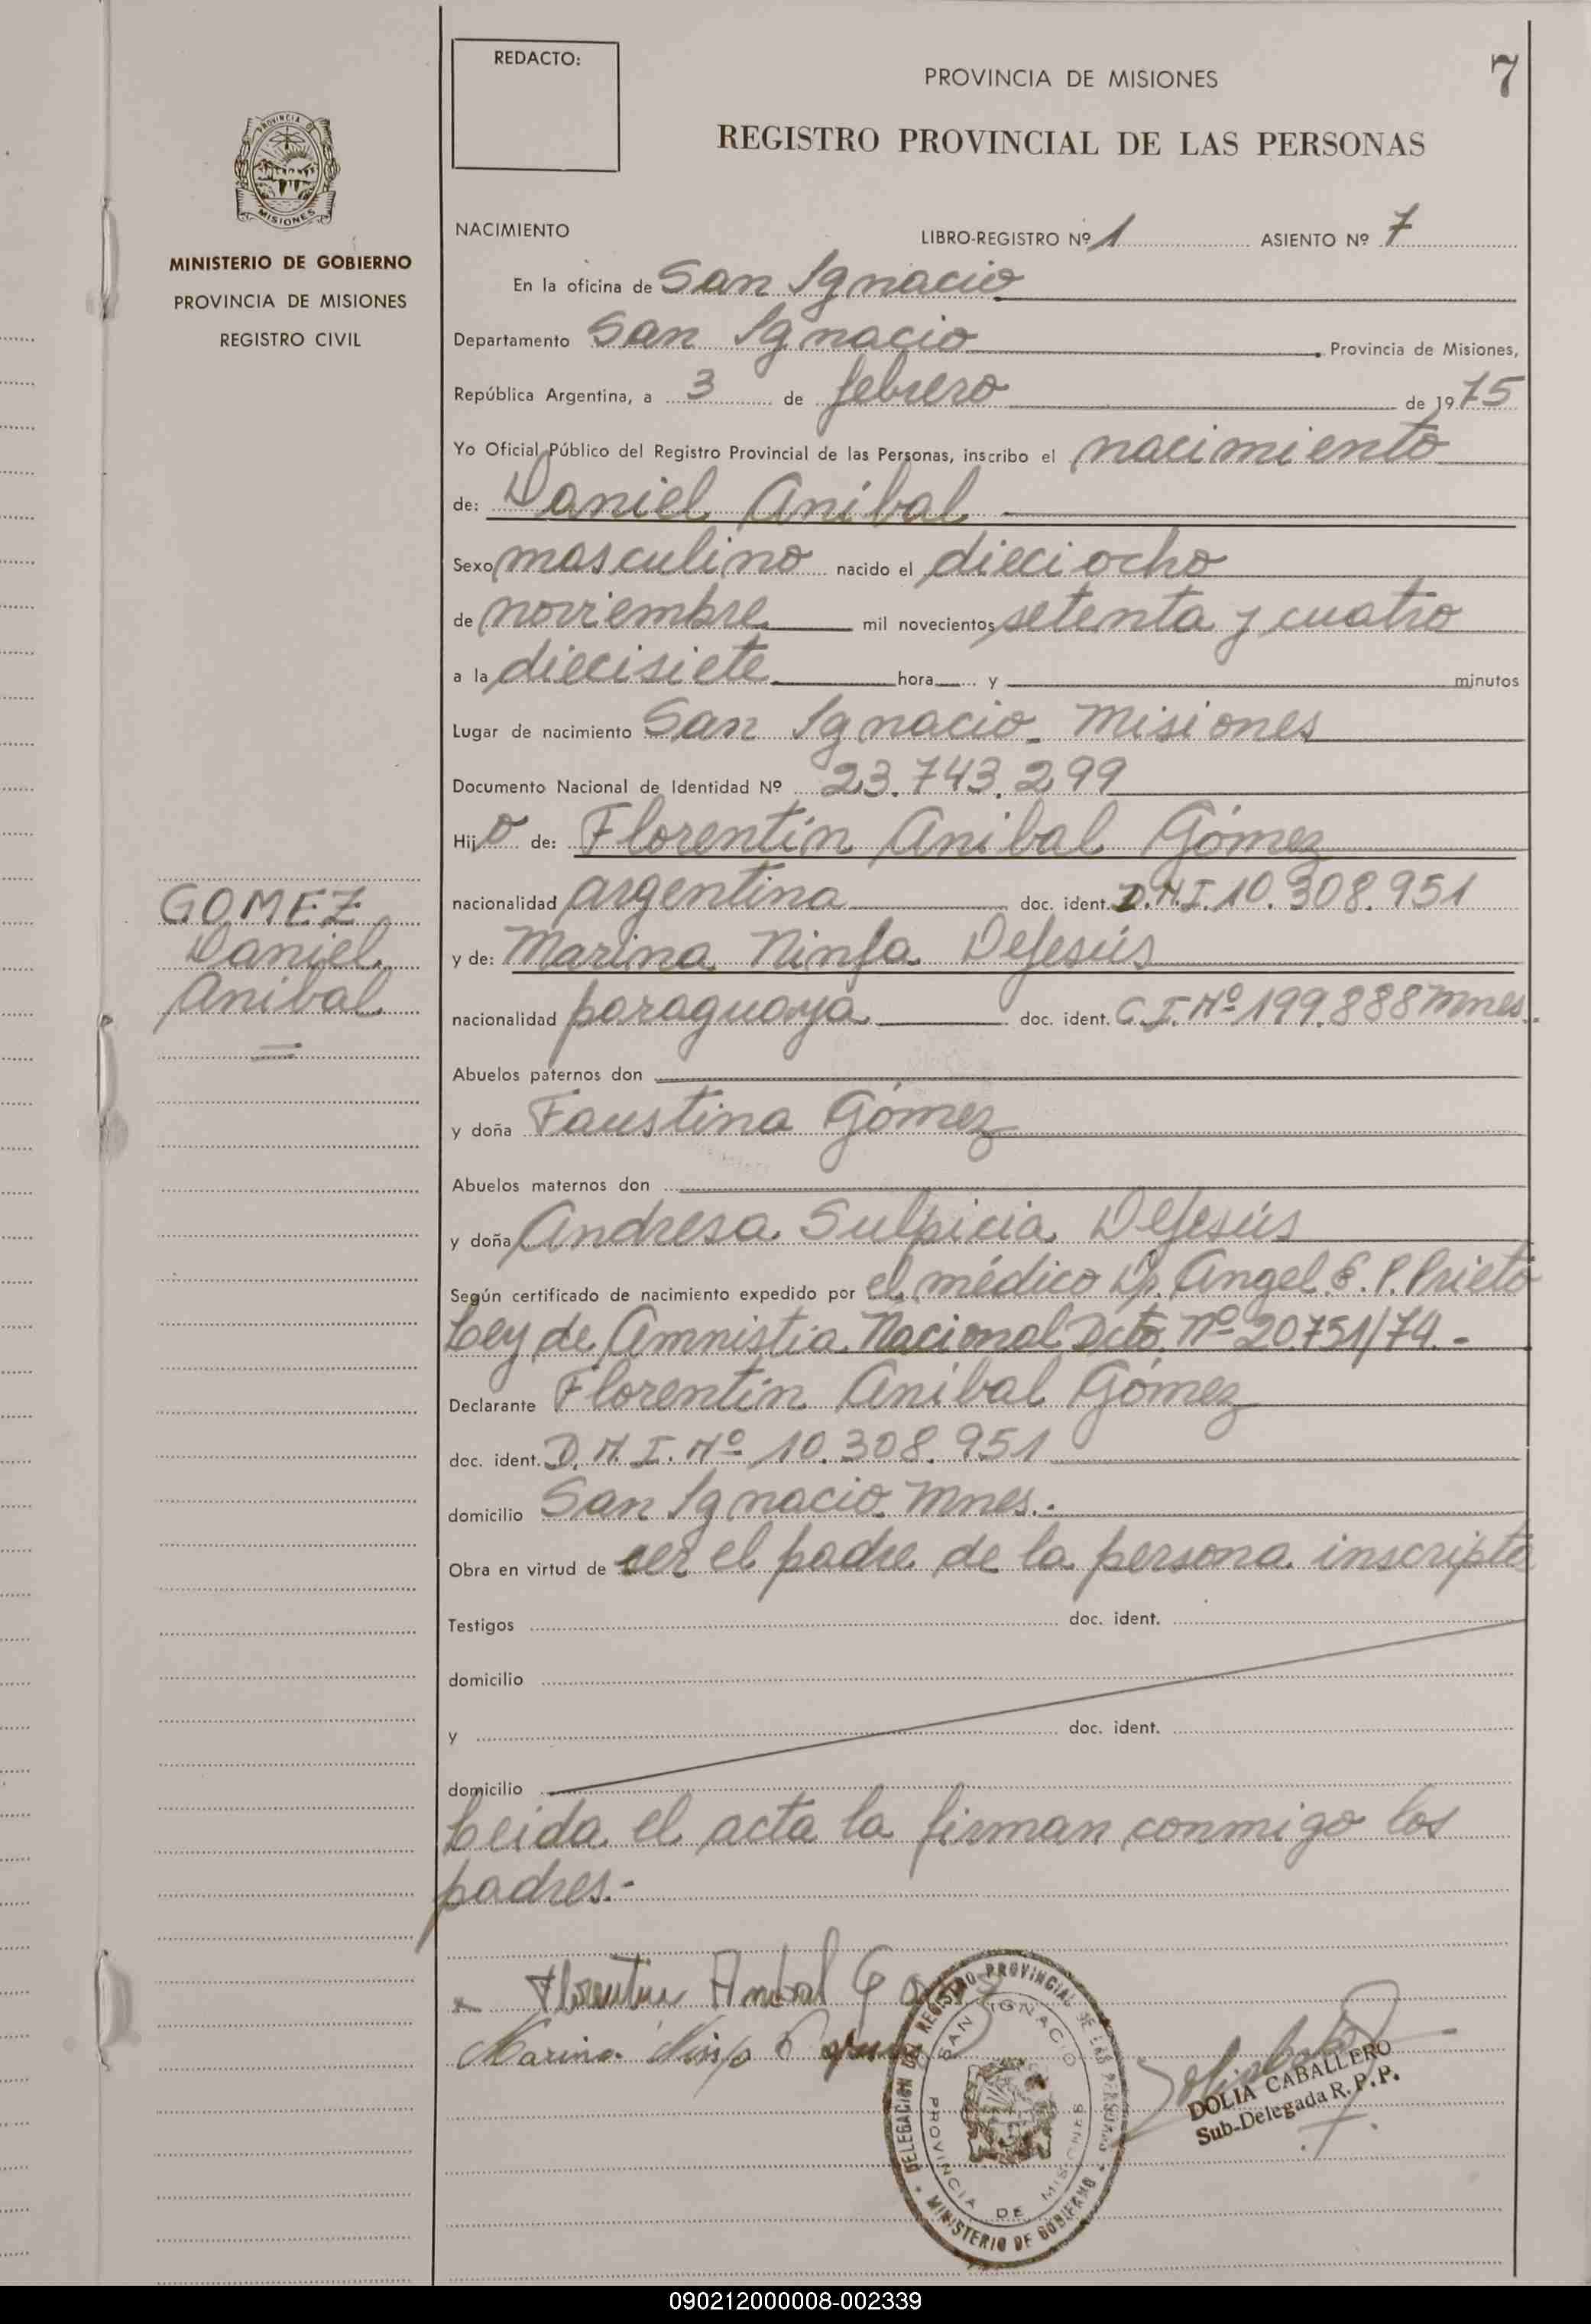 REDACTO:
PROVINCIA DE MISIONES
7
REGISTRO PROVINCIAL DE LAS PERSONAS
PROVINCIA D
MISIONES
MINISTERIO DE GOBIERNO
PROVINCIA DE MISIONES
REGISTRO CIVIL
NACIMIENTO LIBRO-REGISTRO Nº 1 ASIENTO Nº 7
En la oficina de San Ignacio
Departamento San Ignacio Provincia de Misiones,
República Argentina, a 3 de febrero de 1975
Yo Oficial Público del Registro Provincial de las Personas, inscribo el nacimiento
de: Daniel Anibal
Sexo masculino nacido el dieciocho
de noviembre mil novecientos setenta y cuatro
a la diecisiete hora y minutos
Lugar de nacimiento San Ignacio - Misiones
Documento Nacional de Identidad Nº 23.743.299
Hijo de: Florentín Anibal Gómez
nacionalidad argentina doc. ident. D.N.I. 10.308.951
y de: Marina Ninfa DeJesús
nacionalidad paraguaya doc. ident. C.I. Nº 199.888 Mnes.
GOMEZ
Daniel
Anibal
Abuelos paternos don
y doña Faustina Gómez
Abuelos maternos don
y doña Andresa Sulpicia DeJesús
Según certificado de nacimiento expedido por el médico Dr. Angel E. P. Prieto
Ley de Amnistía Nacional Dcto. Nº 20.751/74.-
Declarante Florentín Anibal Gómez
doc. ident. D.N.I. Nº 10.308.951
domicilio San Ignacio Mnes.
Obra en virtud de ser el padre de la persona inscripta
Testigos doc. ident.
domicilio
y doc. ident.
domicilio
Leida el acta la firman conmigo los
padres.-
Florentin Anibal
Marina
DELEGACIÓN DEL REGISTRO PROVINCIAL DE LAS PERSONAS
SAN IGNACIO
PROVINCIA DE MISIONES
MINISTERIO DE GOBIERNO
DOLIA CABALLERO
Sub-Delegada R. P. P.
090212000008-002339